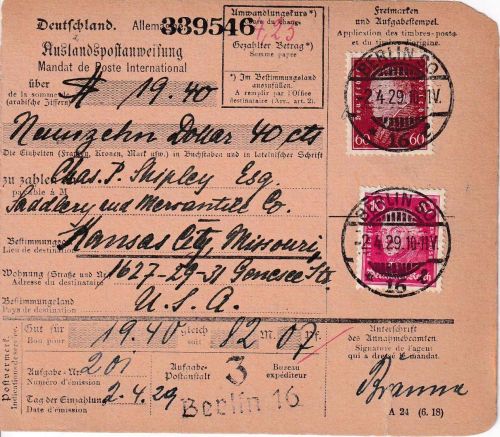 Deutschland. Allemagne
339546
Auslandspostanweisung
Mandat de Poste International
Umwandlungskurs*)
Cours du change
423
Gezahlter Betrag*)
Somme payée
*) Im Bestimmungsland
auszufüllen.
A remplir par l'Office
destinataire (Arr., art. 2).
Freimarken
und Aufgabestempel.
Application des timbres-poste
et du timbre d'origine.
über
de la somme de
(arabische Ziffern)
$ 19.40
Neunzehn Dollar 40 cts
Die Einheiten (Franken, Kronen, Mark usw.) in Buchstaben und in lateinischer Schrift
zu zahlen an
payable à M
Chas. P. Shipley Esq.
Saddlery and Mercantile Co.
Bestimmungsort
Lieu de destination
Kansas City, Missouri,
Wohnung (Straße und Nr.)
Adresse du destinataire
1627-29-31 Genesee Str.
Bestimmungsland
Pays de destination
U.S.A.
BERLIN SO
2.4.29.10-11V.
* 16 t
60 60
BERLIN SO
-2.4.29.10-11V
* 16 t
Gut für
Bon pour
19.40 gleich
soit
82 M. 07 Pf.
Postvermerk.
Indications de service
Aufgabe-Nr.
Numéro d'émission
201
Aufgabe-
Postanstalt
3
Bureau
expéditeur
Tag der Einzahlung
Date d'émission
2.4.29
Berlin 16
Unterschrift
des Annahmebeamten.
Signature de l'agent
qui a dressé le mandat.
A 24 (6.18)